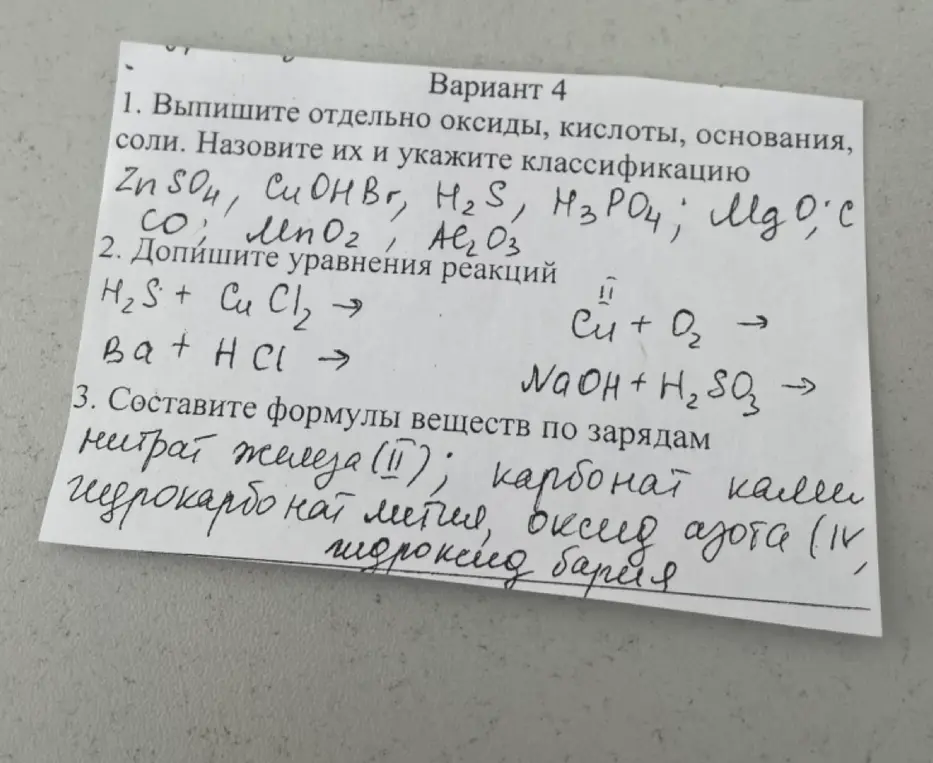 Вариант 4
1. Выпишите отдельно оксиды, кислоты, основания,
соли. Назовите их и укажите классификацию
ZnSO₄, CuOHBr, H₂S, H₃PO₄; MgO; C
CO; MnO₂, Al₂O₃
2. Допишите уравнения реакций
H₂S + CuCl₂ → II Cu + O₂ →
Ba + HCl → NaOH + H₂SO₃ →
3. Составите формулы веществ по зарядам
нитрат железа (II); карбонат калия
гидрокарбонат лития, оксид азота (IV,
гидроксид бария